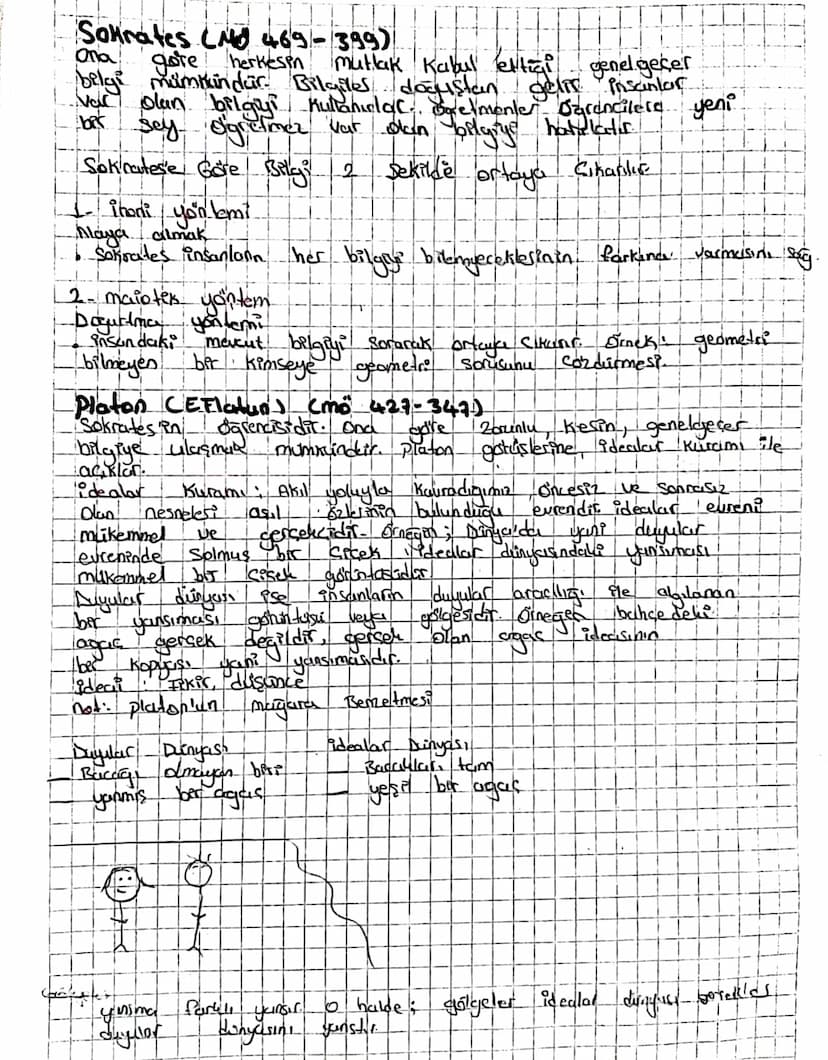 Sokrates (MÖ 469-399)
Ona göre herkesin mutlak kabul ettiği genelgeçer
bilgi mümkündür. Bilgiler doğuştan gelir insanlar
var olan bilgiyi kullanırlar. öğretmenler öğrencilere yeni
bir şey öğretmez var olan bilgiyi hatırlatır
Sokrates'e Göre Bilgi 2 şekilde ortaya Çıkarılır
1- ironi yöntemi
Alaya almak
• Sokrates insanların her bilgiyi bilemeyeceklerinin farkına varmasını sağ
2- maiotik yöntem
Doğurtma yöntemi
• insandaki mevcut bilgiyi sorarak ortaya çıkarır. Örnek: geometri
bilmeyen bir kimseye geometri sorusunu çözdürmesi.
Platon (Eflatun) (mö 427-347)
Sokrates'in öğrencisidir. Ona göre zorunlu, kesin, genelgeçer
bilgiye ulaşmak mümkündür. Platon görüşlerine, idealar kuramı ile
açıklar.
idealar Kuramı: Akıl yoluyla kavradığımız, öncesiz ve sonrasız
olan nesneleri asıl özlerinin bulunduğu evrendir. idealar evreni
mükemmel ve gerçekcidir. Örneğin; Dünya'da yani duyular
evreninde solmuş bir çiçek idealar dünyasındaki yansıması
mükemmel bir çiçek görüntüsüdür
Duyular dünyası ise insanların duyular aracılığı ile algılanan
bir yansıması görüntüsü veya gölgesidir. Örneğer bahçedeki
agaç gerçek değildir, gerçek olan agaç ideasının
bir kopyası yani yansımasıdır.
idea: Fikir, düşünce
not: platon'un mağara Benzetmesi
Duyular Dünyası idealar Dünyası
— Bacağı olmayan biri — Bacakları tam
— yanmış bir agaç — yeşil bir agaç
yansıma farklı yansır o halde; gölgeler idealar dünyası
duyular dünyasını yansıtır.